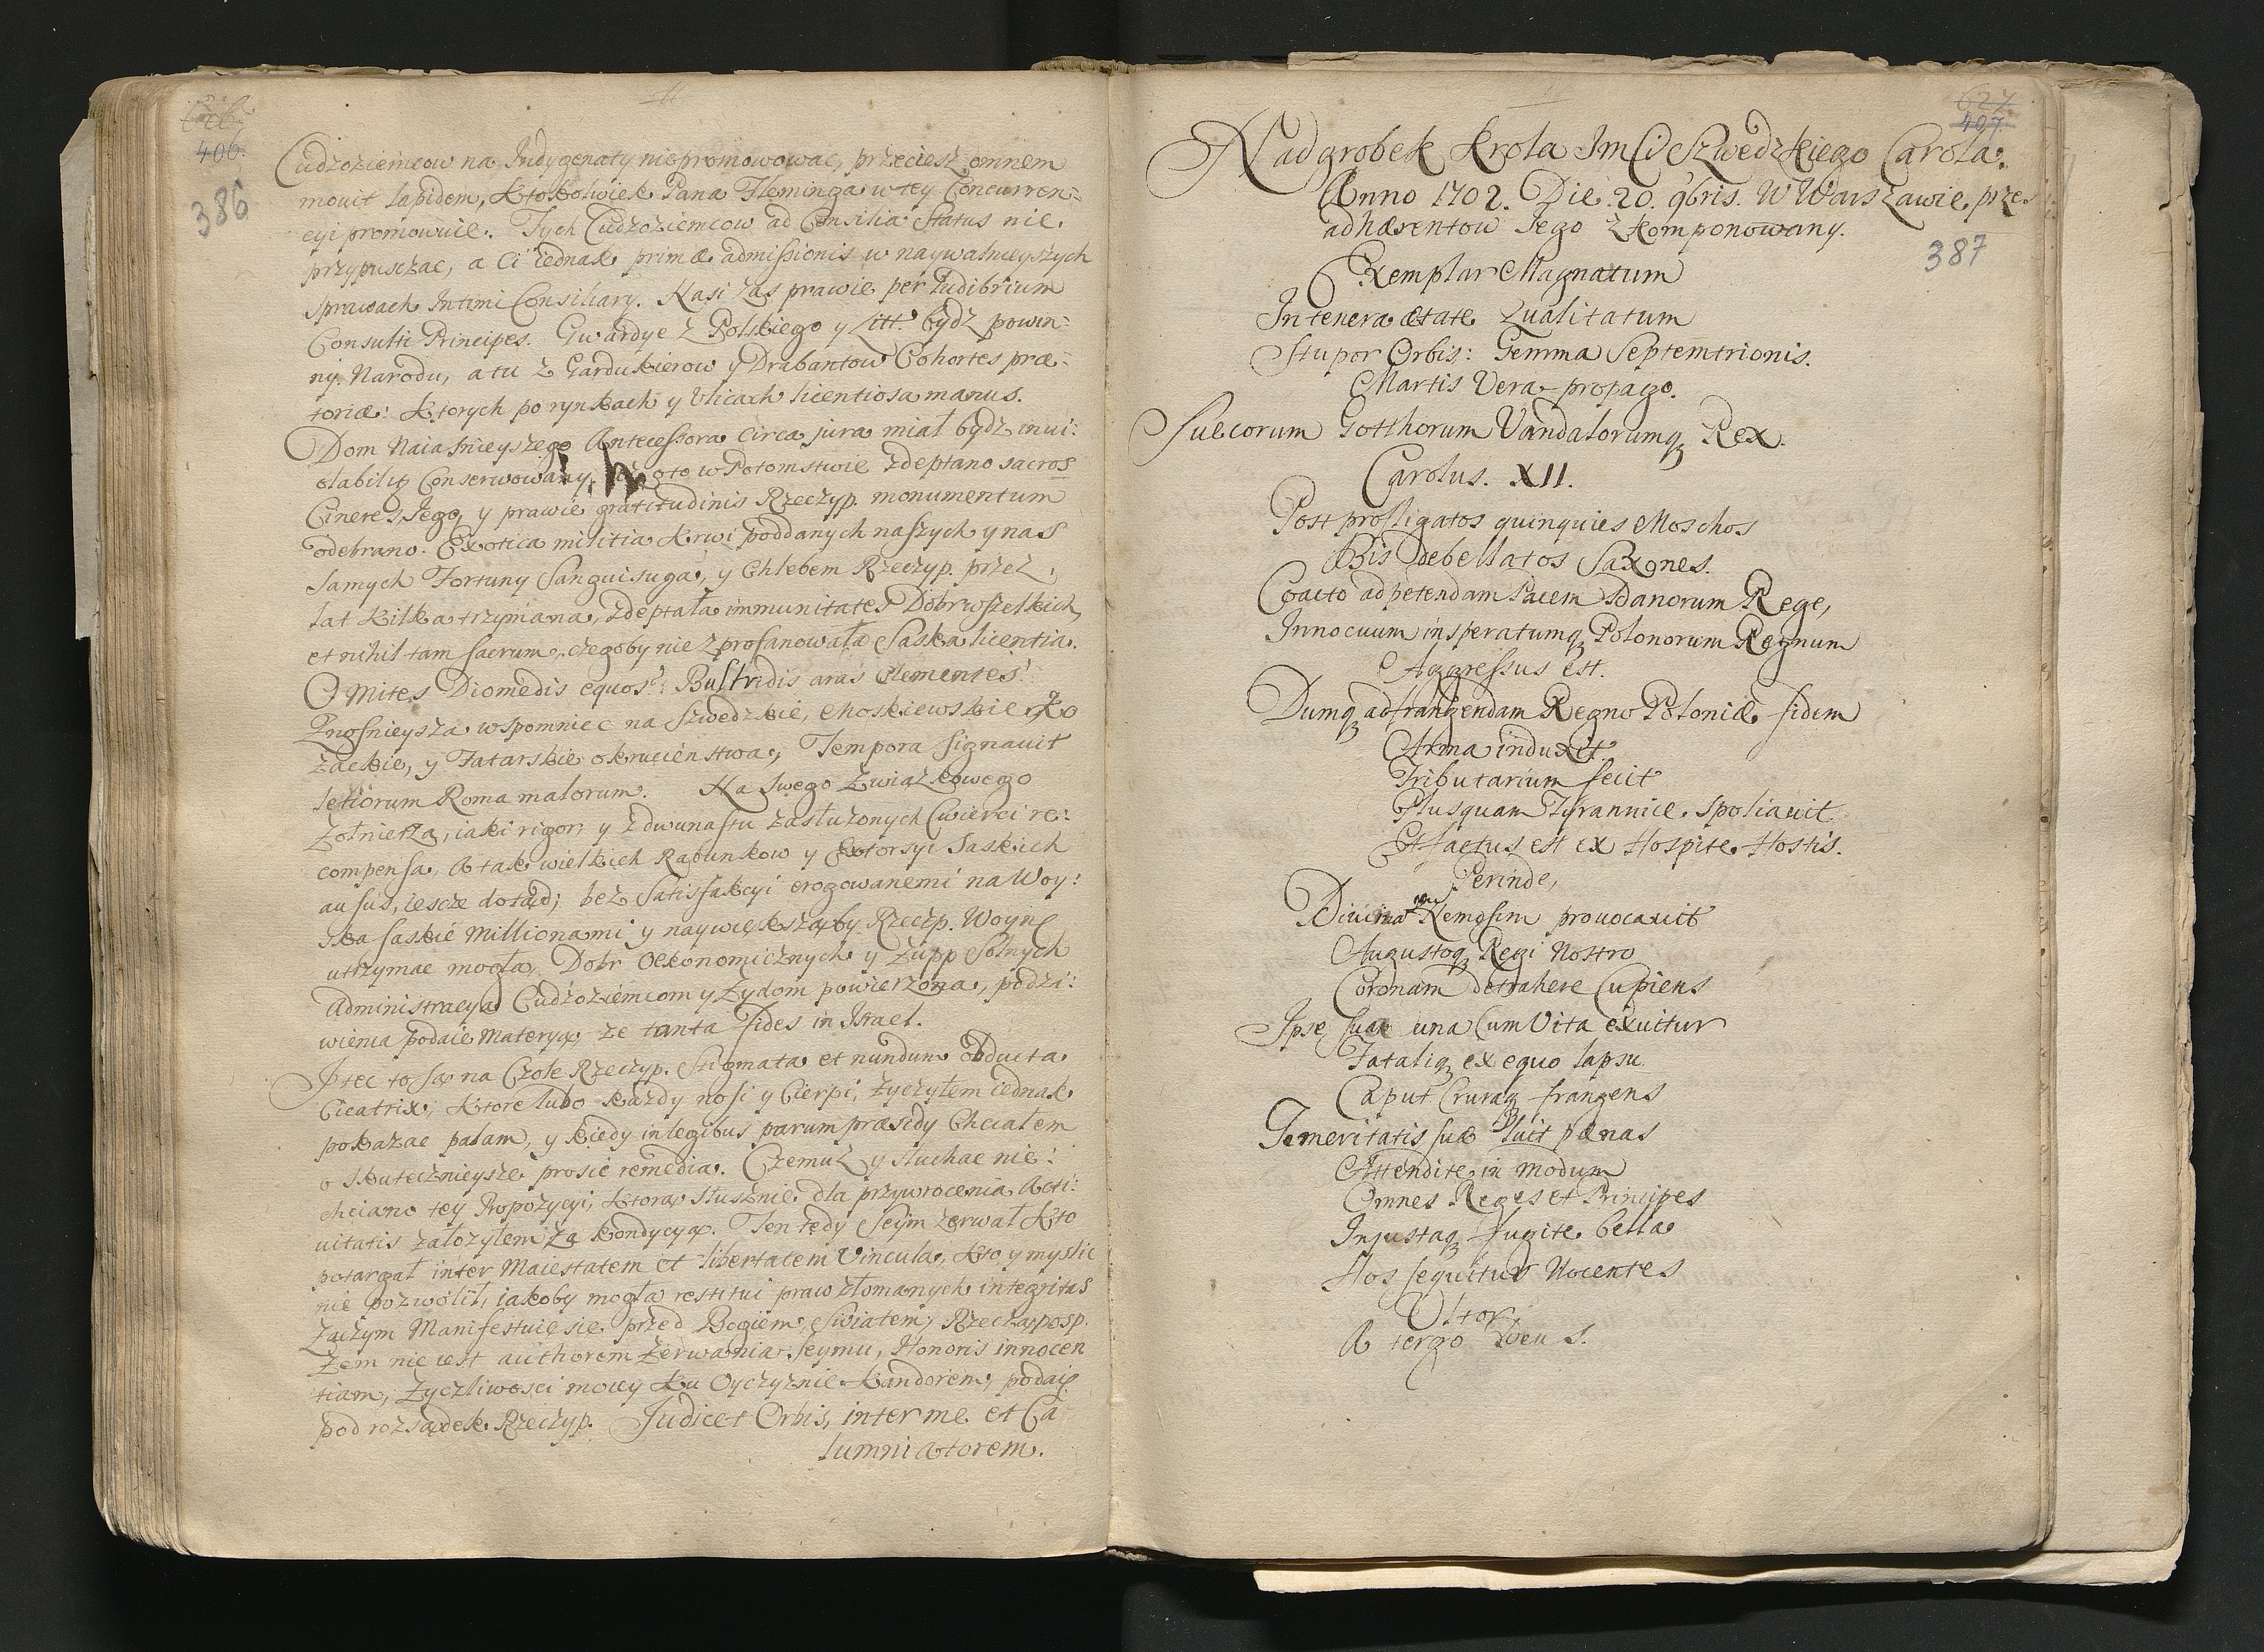 406.
386
Cudzoziemcow na Indygenaty niepromowowac, przeciesz omnem
mouit lapidem, Ktokolwiek Pana Fleminga w tey Concurren=
cyi promowuie. Tych Cudzoziemcow ad Consilia Status nie
przypusczac, a Ci iednak primæ admissionis w naywalnieyszych
sprawach Intimi Consiliary. Nasi zas prawie per ludibrium
Consulti Principes. Gwardye z Polskiego y Litt. bydz powin=
ny Narodu, a tu z Gardukierow y Drabantow Cohortes præ=
toriæ: Ktorych po rynkach y Vlicach licentiosa manus.
Dom Naiasnieyszego Antecessora circa jura miał bydz inui:
olabiliter Conserwowany, w Potomstwie zdeptano sacros
Cineres Jego, y prawie gratitudinis Rzeczyp. monumentum
odebrano. Exotica militia Krwi poddanych naszych y nas
samych Fortuny Sanguisuga, y Chlebem Rzeczyp. przez
lat kilka trzymana, zdeptała immunitates Dobr wszelkich
et nihil tam sacrum, czegoby nie zprofanowała Saska licentia.
O mites Diomedis equos! Busiridis aras Clementes!
Znosnieysza wspomniec na Szwedzkie, Moskiewskie Ko
zackie, y Tatarskie okrucienstwa, Tempora signauit
letiorum Roma malorum. Na swego Zwiąskowego
Zołnierza, iaki rigor, y z dwunastu zasłuzonych Cwierci re:
compensa, A tak wielkich Rabunkow y Extorsyi Saskich
ausus, iescze dotąd, bez Satisfakcyi erogowanemi na Woy:
ska saskie Millionami y naywiększąby Rzeczp. Woynę
utrzymac mogła, Dobr Oekonomicznych y Zupp Solnych
Administracya Cudzoziemcom y Zydom powierzona, podzi:
wienia podaie Materyą, ze tanta fides in Israel.
Jtec to są na Czole Rzeczyp. Stigmata et nundum obducta
Cicatrix, Ktore lubo kazdy nosi y Cierpi, zyczyłem iednak
pokazac palam, y kiedy in legibus parum præsidy Chciałem
o skutecznieysze prosic remedia. Czemuz y słuchac nie:
chciano tey Propozycyi, Ktorą słusznie dla przywrocenia Acti:
uitatis załozyłem za kondycyą. Ten tedy Seym zerwał Kto
potargał inter Maiestatem et libertatem Vincula, kto y myslic
nie pozwolił, iakoby mogła restitui praw złomanych integritas
zaczym Manifestuię się przed Bogiem, Swiatem, Rzecząposp.
Zem nie iest authorem zerwania Seymu, Honoris innocen
tiam, Zyczliwosci moiey Ku Oyczyznie Kandorem, podaię
pod rozsądek Rzeczyp. Judicet Orbis, inter me et Ca
lumniatorem.
627
407
Nadgrobek Krola Jm Ci Szwedzkiego Carola.
Anno 1702. Die 20. 9bris. W Warszawie, przez
adhærentow Jego zkomponowany.
387
Exemplar Magnatum
In tenera ætate Qualitatum
Stupor Orbis: Gemma Septemtrionis.
Martis Vera propago.
Suecorum Gotthorum Vandalorumq Rex.
Carolus. XII.
Post profligatos quinquies Moschos
Bis Debellatos Saxones.
Coacto ad petendam Pacem Danorum Rege,
Innocuum insperatumq Polonorum Regnum
Aggressus est.
Dumq ad frangendam Regno Poloniæ fidem
Arma induxit
Tributarium fecit
Plusquam Tyrannice spoliauit
Et factus est ex Hospite Hostis.
Perinde,
Diuina Nemesim prouocauit
Augustoq Regi Nostro
Coronam detrahere Cupiens
Ipse sua una Cum Vita exuitur
Fataliq ex equo lapsu
Caput Cruraq frangens
Temeritatis suæ luit pænas
Attendite in modum
Omnes Reges et Principes
Injustaq fugite bella
Hos sequitur Nocentes
Ultor
A tergo Deus.